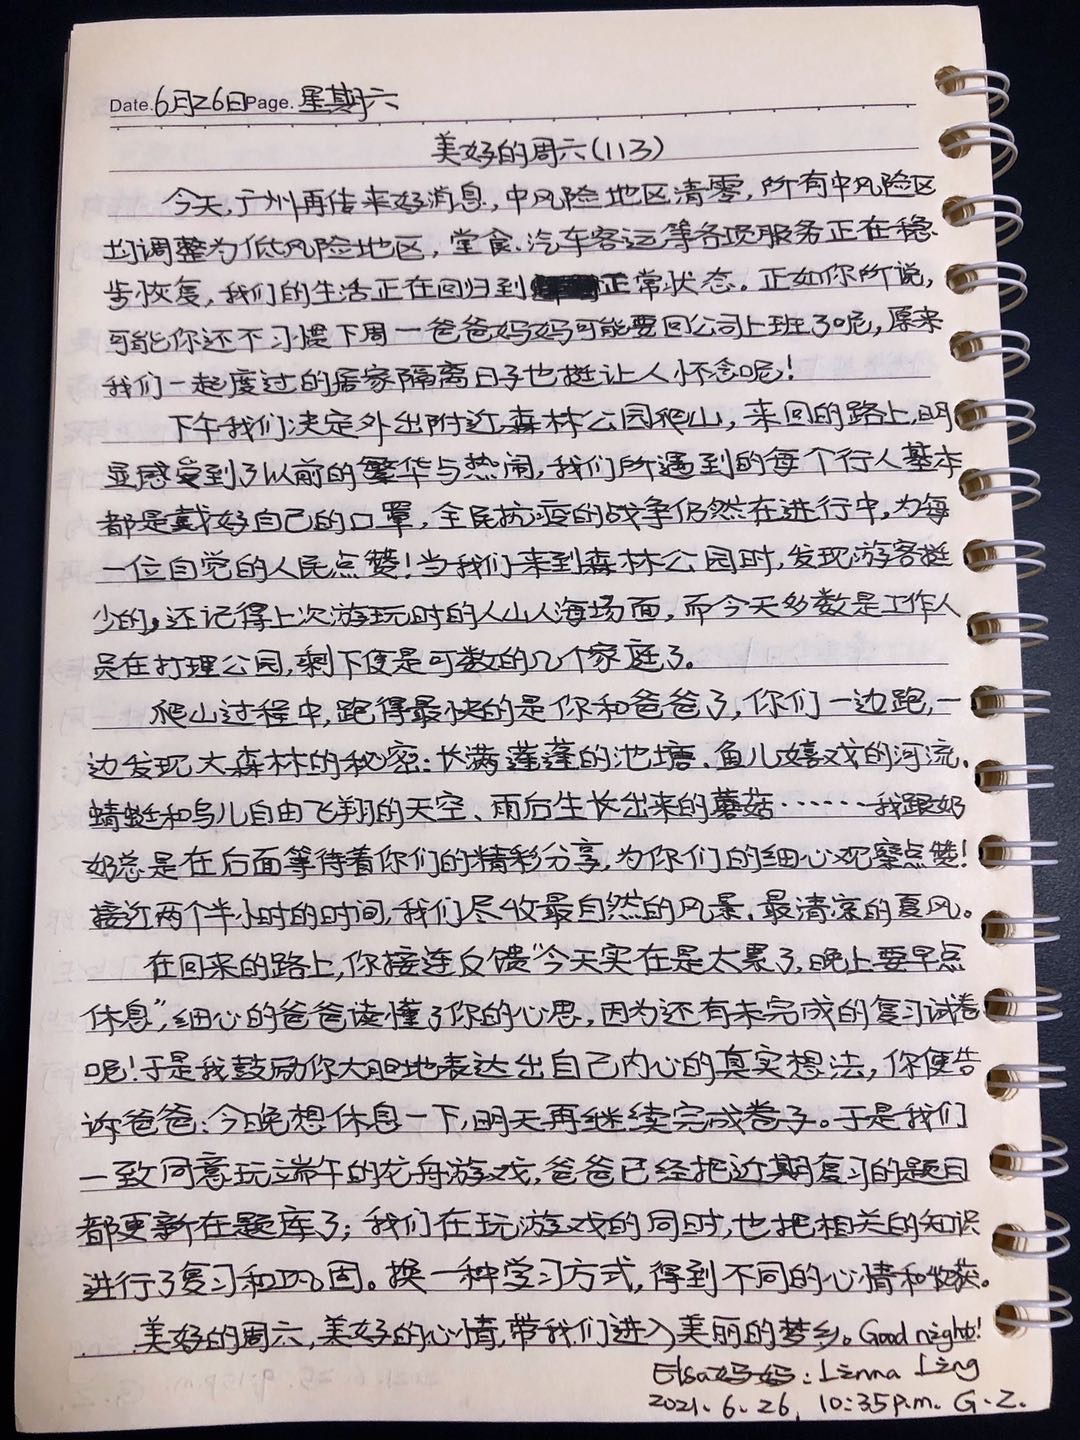 Date.6月26日Page.星期六
美好的周六(113)
今天,广州再传来好消息,中风险地区清零,所有中风险区
均调整为低风险地区,堂食、汽车客运等各项服务正在稳
步恢复,我们的生活正在回归到正常状态。正如你所说,
可能你还不习惯下周一爸爸妈妈可能要回公司上班了呢,原来
我们一起度过的居家隔离日子也挺让人怀念呢!
下午我们决定外出附近森林公园爬山,来回的路上,明
显感受到了以前的繁华与热闹,我们所遇到的每个行人基本
都是戴好自己的口罩,全民抗疫的战争仍然在进行中,为每
一位自觉的人民点赞!当我们来到森林公园时,发现游客挺
少的,还记得上次游玩时的人山人海场面,而今天多数是工作人
员在打理公园,剩下便是可数的几个家庭了。
爬山过程中,跑得最快的是你和爸爸了,你们一边跑,一
边发现大森林的秘密:长满莲蓬的池塘、鱼儿嬉戏的河流、
蜻蜓和鸟儿自由飞翔的天空、雨后生长出来的蘑菇……我跟奶
奶总是在后面等待着你们的精彩分享,为你们的细心观察点赞!
接近两个半小时的时间,我们尽收最自然的风景、最清凉的夏风。
在回来的路上,你接连反馈“今天实在是太累了,晚上要早点
休息”,细心的爸爸读懂了你的心思,因为还有未完成的复习试卷
呢!于是我鼓励你大胆地表达出自己内心的真实想法,你便告
诉爸爸:今晚想休息一下,明天再继续完成卷子。于是我们
一致同意玩端午的龙舟游戏,爸爸已经把近期复习的题目
都更新在题库了;我们在玩游戏的同时,也把相关的知识
进行了复习和巩固。换一种学习方式,得到不同的心情和收获。
美好的周六,美好的心情,带我们进入美丽的梦乡。Good night!
Elsa妈妈:Linna Ling
2021.6.26, 10:35p.m. G.Z.